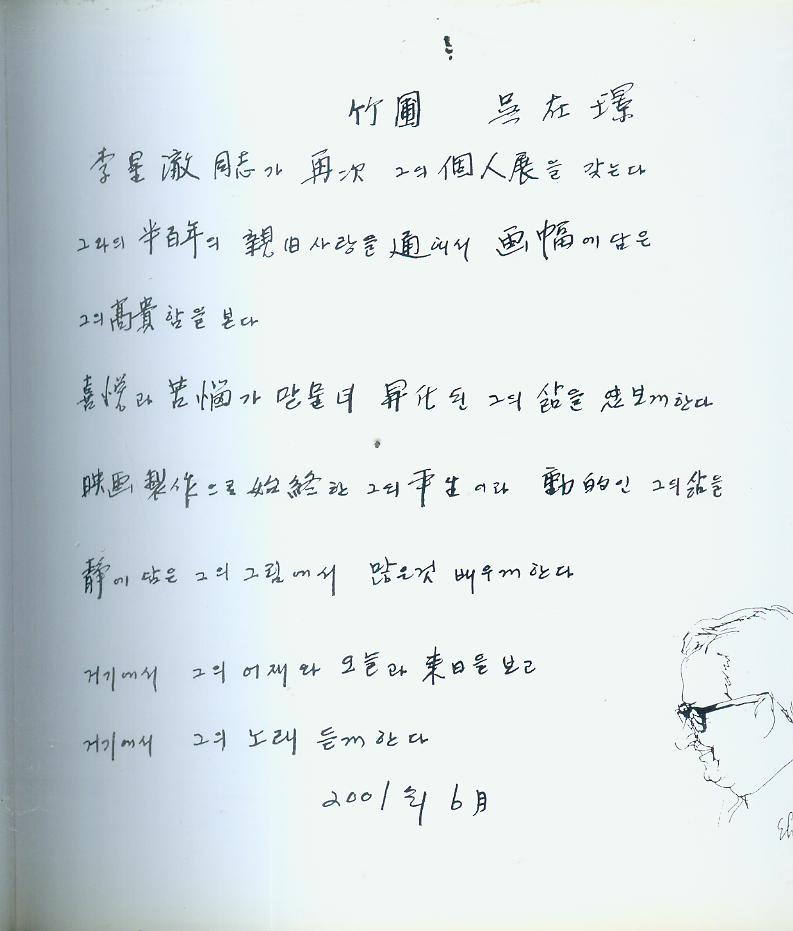 竹圃 吳在璟
李星澈 同志가 再次 그의 個人展을 갖는다
그와의 半百年의 親旧 사랑을 通해서 画幅에 담은
그의 高貴함을 본다
喜悅과 苦惱가 맏물녀 昇化된 그의 삶을 보게한다
映画製作으로 始終한 그의 平生이라 動的인 그의 삶을
静에 담은 그의 그림에서 많은것 배우게 한다
거기에서 그의 어재와 오늘과 來日을 보고
거기에서 그의 노래 듣게 한다
2001年 6月